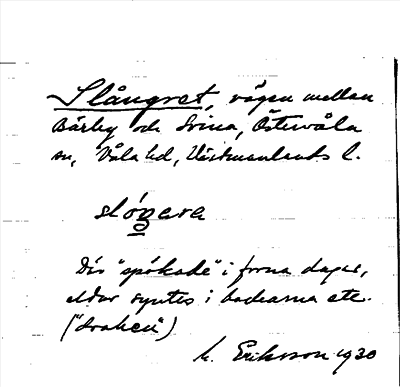 Slångret, vägen mellan
Bärby och Svina, Östervåla
sn, Våla hd, Västmanlands l.
slóŋara
Där "spökade" i forna dagar,
eldar syntes i backarna etc.
("draken")
M. Eriksson 1930